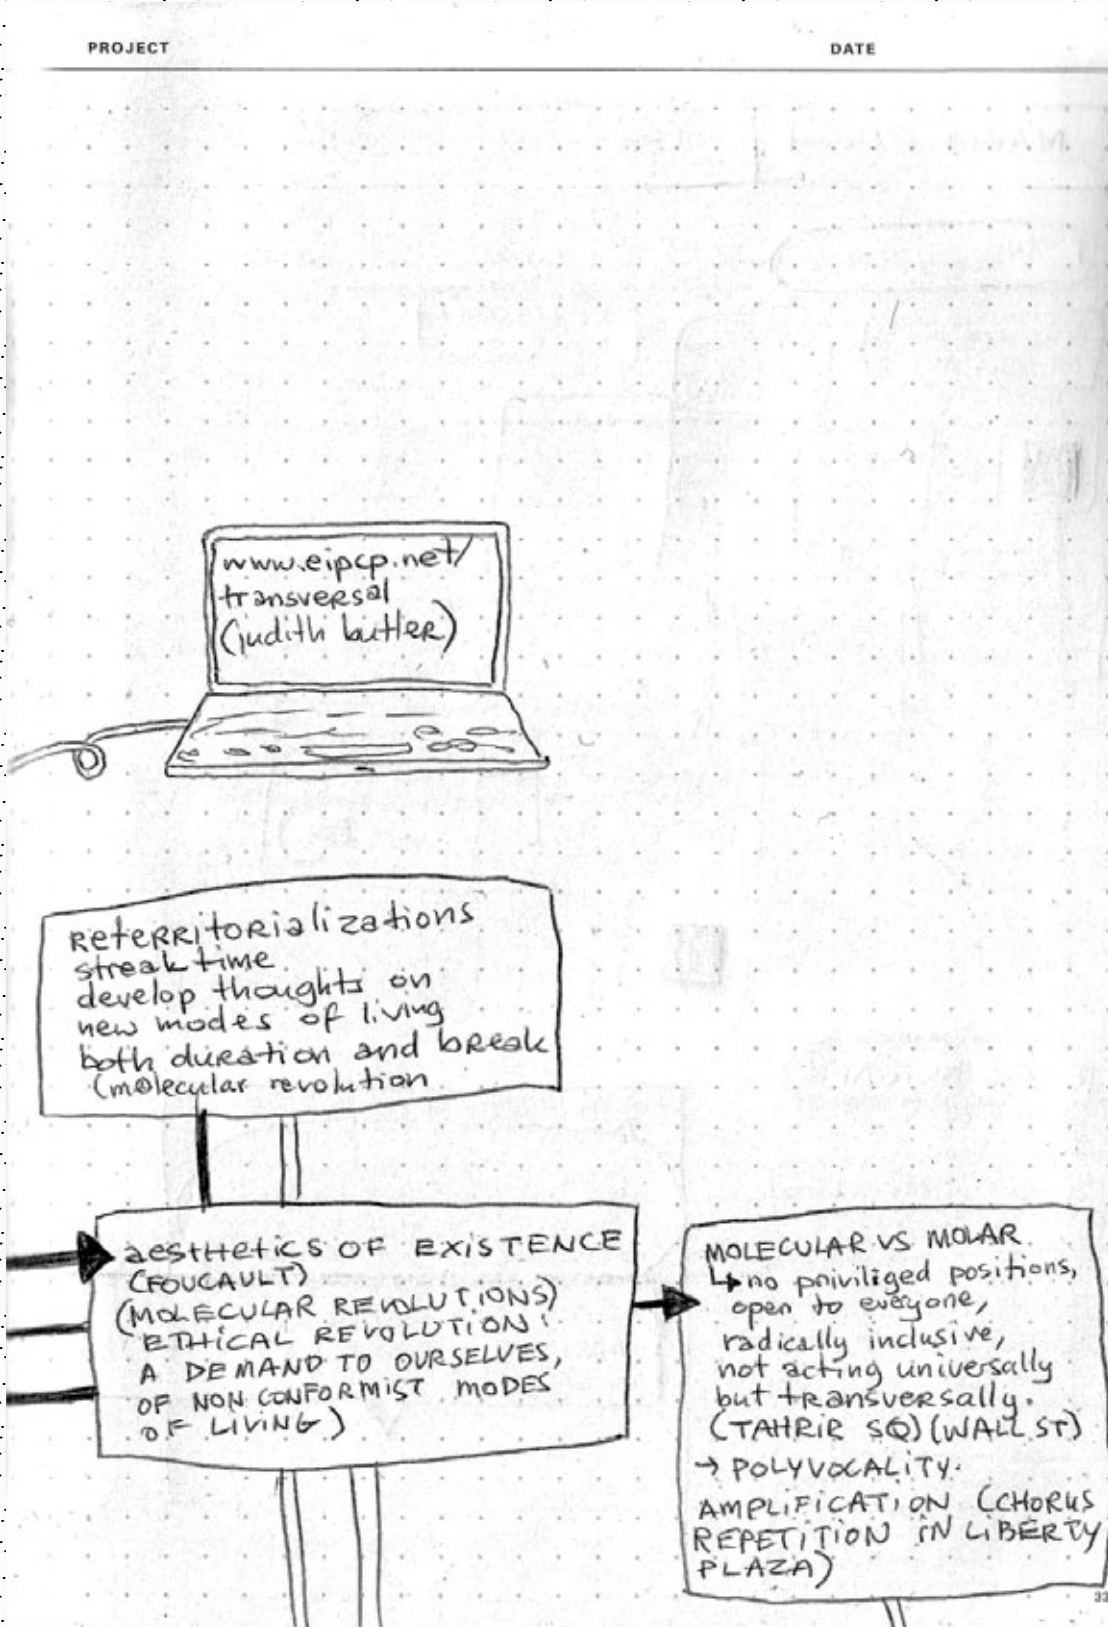 PROJECT
DATE
www.eipcp.net/
transversal
(judith butler)
Reterritorializations
streak time
develop thoughts on
new modes of living
both duration and break
(molecular revolution
aestHetics OF EXISTENCE
(FOUCAULT)
(MOLECULAR REVOLUTIONS)
ETHICAL REVOLUTION:
A DEMAND TO OURSELVES,
OF NON CONFORMIST MODES
OF LIVING)
MOLECULAR VS MOLAR
↳ no priviliged positions,
open to everyone,
radically inclusive,
not acting universally
but transversally.
(TAHRIR SQ) (WALL ST)
→ POLYVOCALITY.
AMPLIFICATION (CHORUS
REPETITION IN LIBERTY
PLAZA)
33